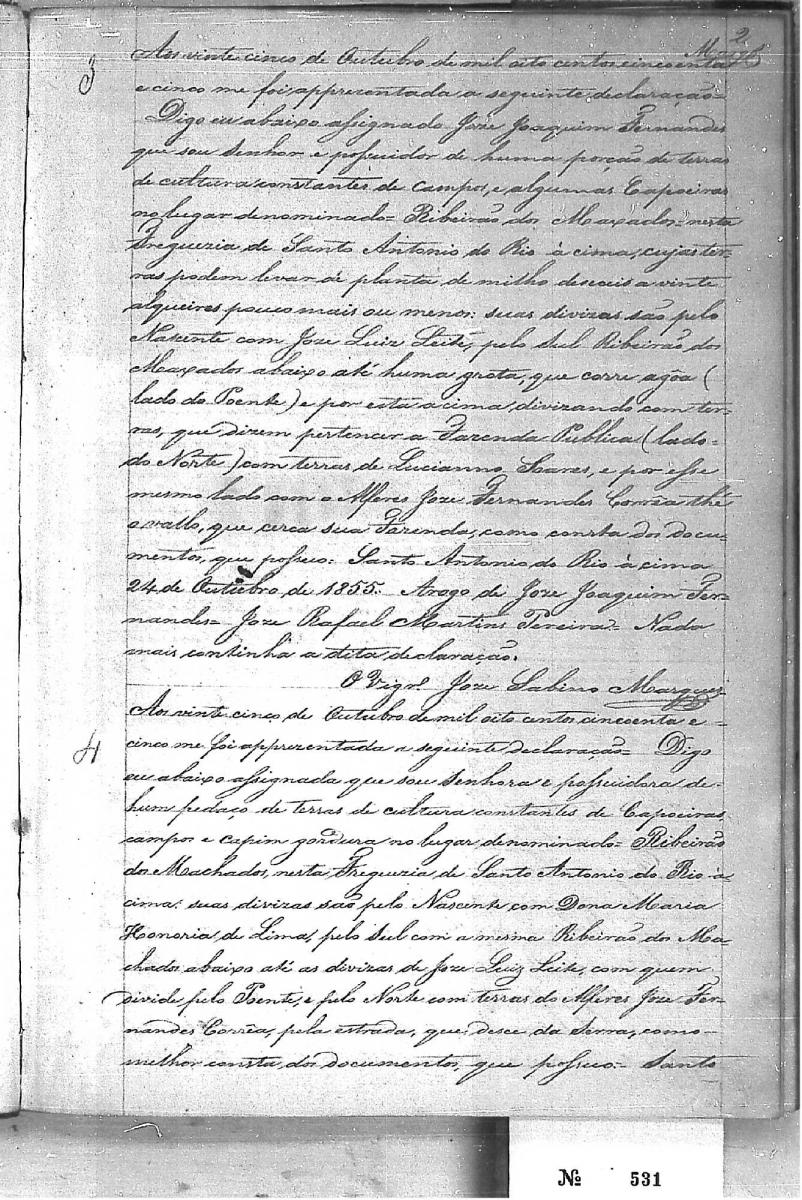 2
3
Aos vinte cinco de Outubro de mil oito centos cincoenta
e cinco me foi, apprezentada a seguinte declaração=
Digo eu abaixo assignado Joze Joaquim Fernandes
que sou senhor e possuidor de huma porção de terras
de cultura constantes de campos, e algumas Capoeiras
no lugar denominado= Ribeirão dos Maxados= nesta
Freguezia de Santo Antonio do Rio à cima, cujas ter-
ras podem levar de planta de milho deseseis a vinte
alqueires pouco mais ou menos: suas divizas são pelo
Nascente com Joze Luiz Leite, pelo Sul Ribeirão dos
Maxados abaixo até huma grota, que corre agôa (
lado do Poente) e por esta a cima, divizando com ter-
ras, que dizem pertencer a Fazenda Publica (lado
do Norte) com terras de Lucianno Soares, e por esse
mesmo lado com o Alferes Joze Fernandes Corrêa thé
o vallo, que cerca sua Fazenda, como consta dos docu-
mentos, que possuo= Santo Antonio do Rio à cima
24 de Outubro de 1855. Arogo de Joze Joaquim Fer-
nandes= Joze Rafael Martins Pereira= Nada
mais continha a dita declaração.
O Vigrº. Joze Sabino Marques
4
Aos vinte cinco de Outubro de mil oito centos cincoenta e
cinco me foi apprezentada a seguinte declaração= Digo
eu abaixo assignada que sou Senhora e possuidora de
hum pedaço de terras de cultura constantes de Capoeiras,
campos e capim gordura no lugar denominado= Ribeirão
dos Machados, nesta Freguezia de Santo Antonio do Rio à
cima: suas divizas são pelo Nascente com Dona Maria
Honoria de Lima, pelo Sul com a mesma Ribeirão dos Ma-
chados abaixo até as divizas de Joze Luiz Leite, com quem
divide pelo Poente, e pelo Norte com terras do Alferes Joze Fer-
nandes Corrêa, pela estrada, que desce da Serra, como
melhor consta dos documentos, que possuo= Santo
Nº 531